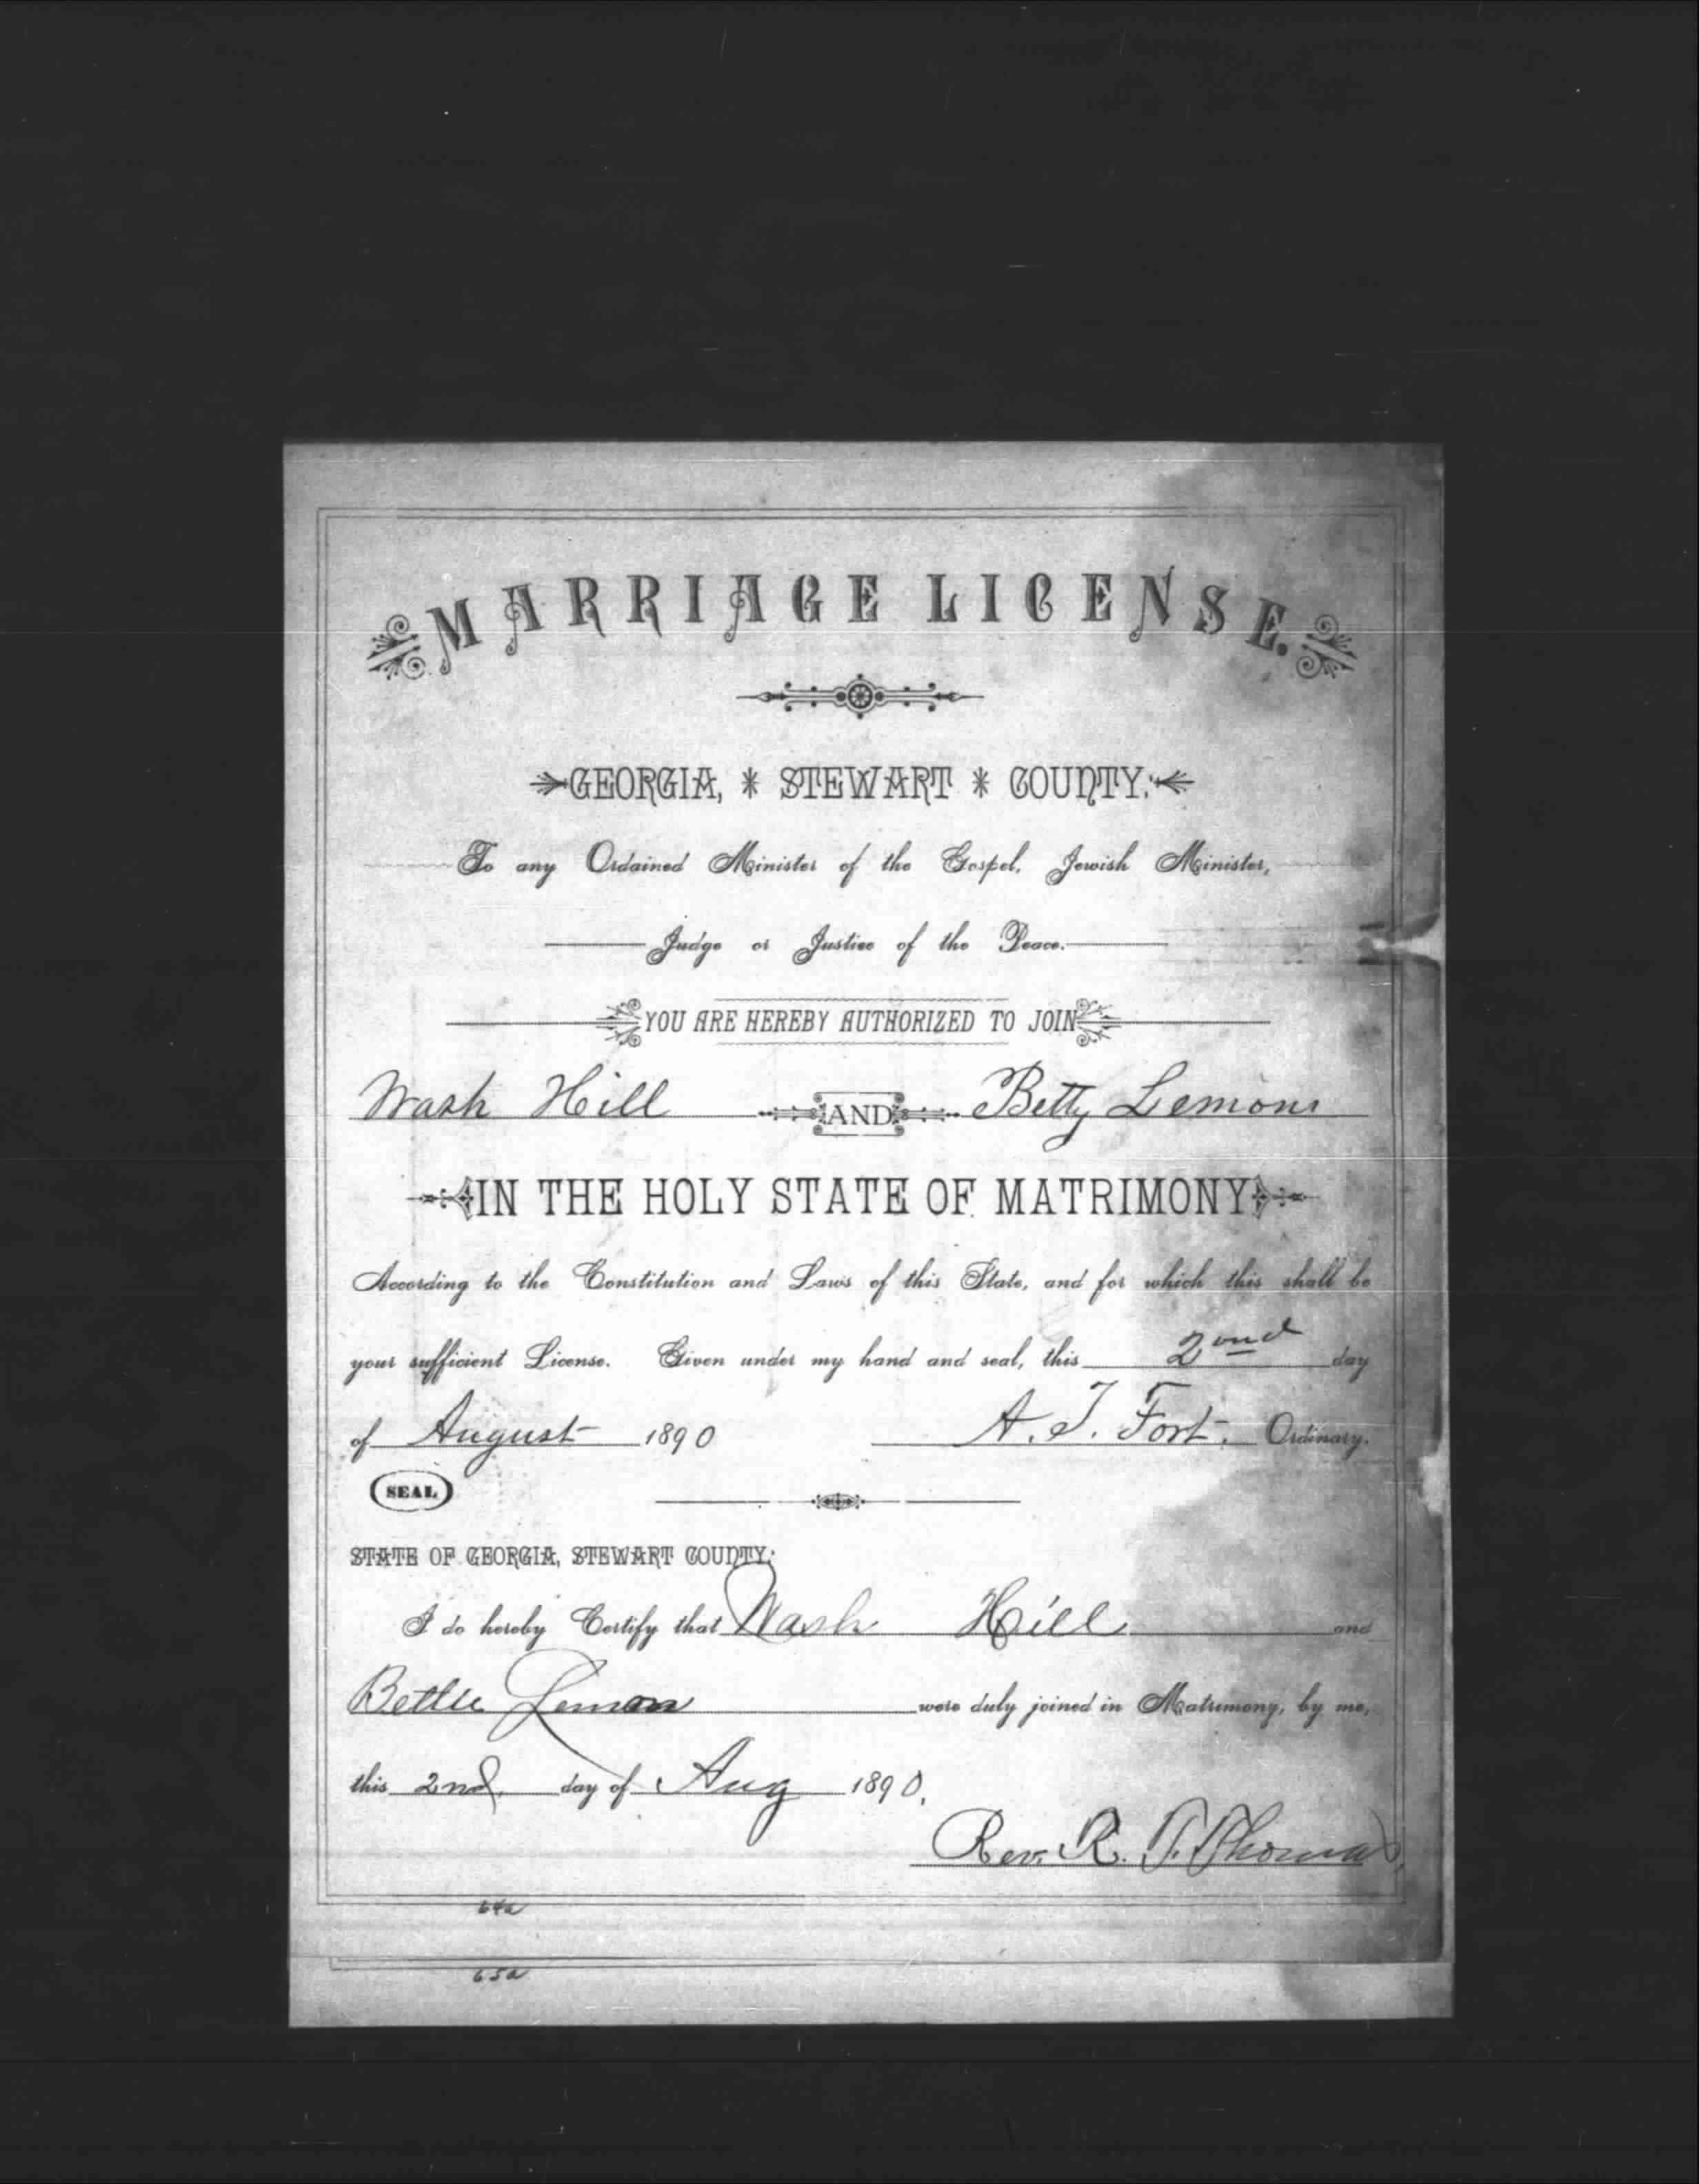 MARRIAGE LICENSE.
GEORGIA, * STEWART * COUNTY:
To any Ordained Minister of the Gospel, Jewish Minister,
Judge or Justice of the Peace.
YOU ARE HEREBY AUTHORIZED TO JOIN
Wash Hill AND Betty Lemons
IN THE HOLY STATE OF MATRIMONY
According to the Constitution and Laws of this State, and for which this shall be
your sufficient License. Given under my hand and seal, this 2ond day
of August 1890 A. T. Fort. Ordinary.
SEAL
STATE OF GEORGIA, STEWART COUNTY:
I do hereby Certify that Wash Hill and
Bettie Lemon were duly joined in Matrimony, by me,
this 2nd. day of Aug 1890.
Rev. R. T. Thomas
64a
65a